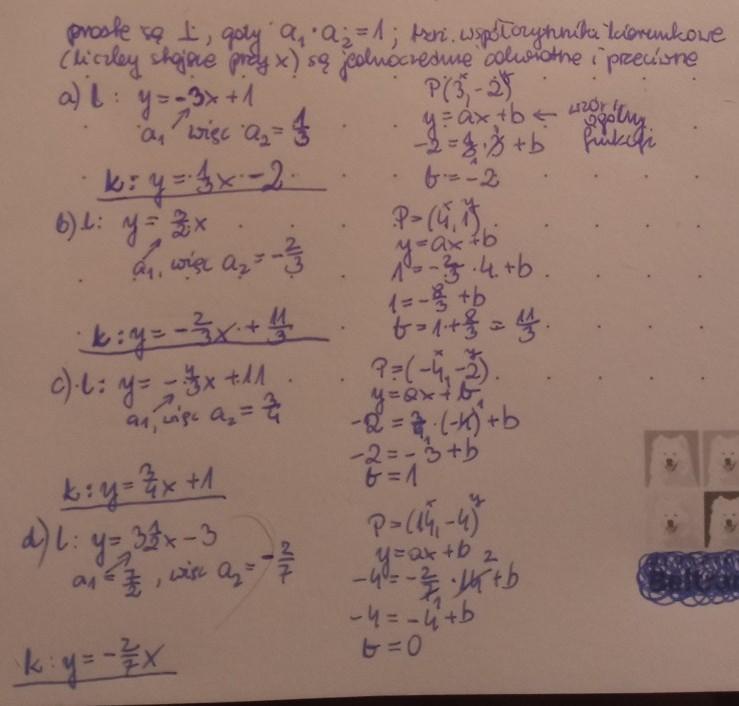 proste są ⊥, gdy a₁·a₂=1; tzn. współczynniki kierunkowe
(liczby stojące przy x) są jednocześnie odwrotne i przeciwne
a) l: y=-3x+1
a₁ więc a₂=1/3
k: y=1/3x-2
P(3,-2)
x y
y=ax+b ← wzór ogólny funkcji
-2=1/3·3+b
b=-2
b) l: y=3/2x
a₁, więc a₂=-2/3
k: y=-2/3x+11/3
P=(4,1)
x y
y=ax+b
1=-2/3·4+b
1=-8/3+b
b=1+8/3=11/3
c) l: y=-4/3x+11
a₁, więc a₂=3/4
k: y=3/4x+1
P=(-4,-2)
x y
y=ax+b
-2=3/4·(-4)+b
-2=-3+b
b=1
d) l: y=3 1/2x-3
a₁=7/2, więc a₂=-2/7
k: y=-2/7x
P=(14,-4)
x y
y=ax+b
-4=-2/7·14+b
-4=-4+b
b=0